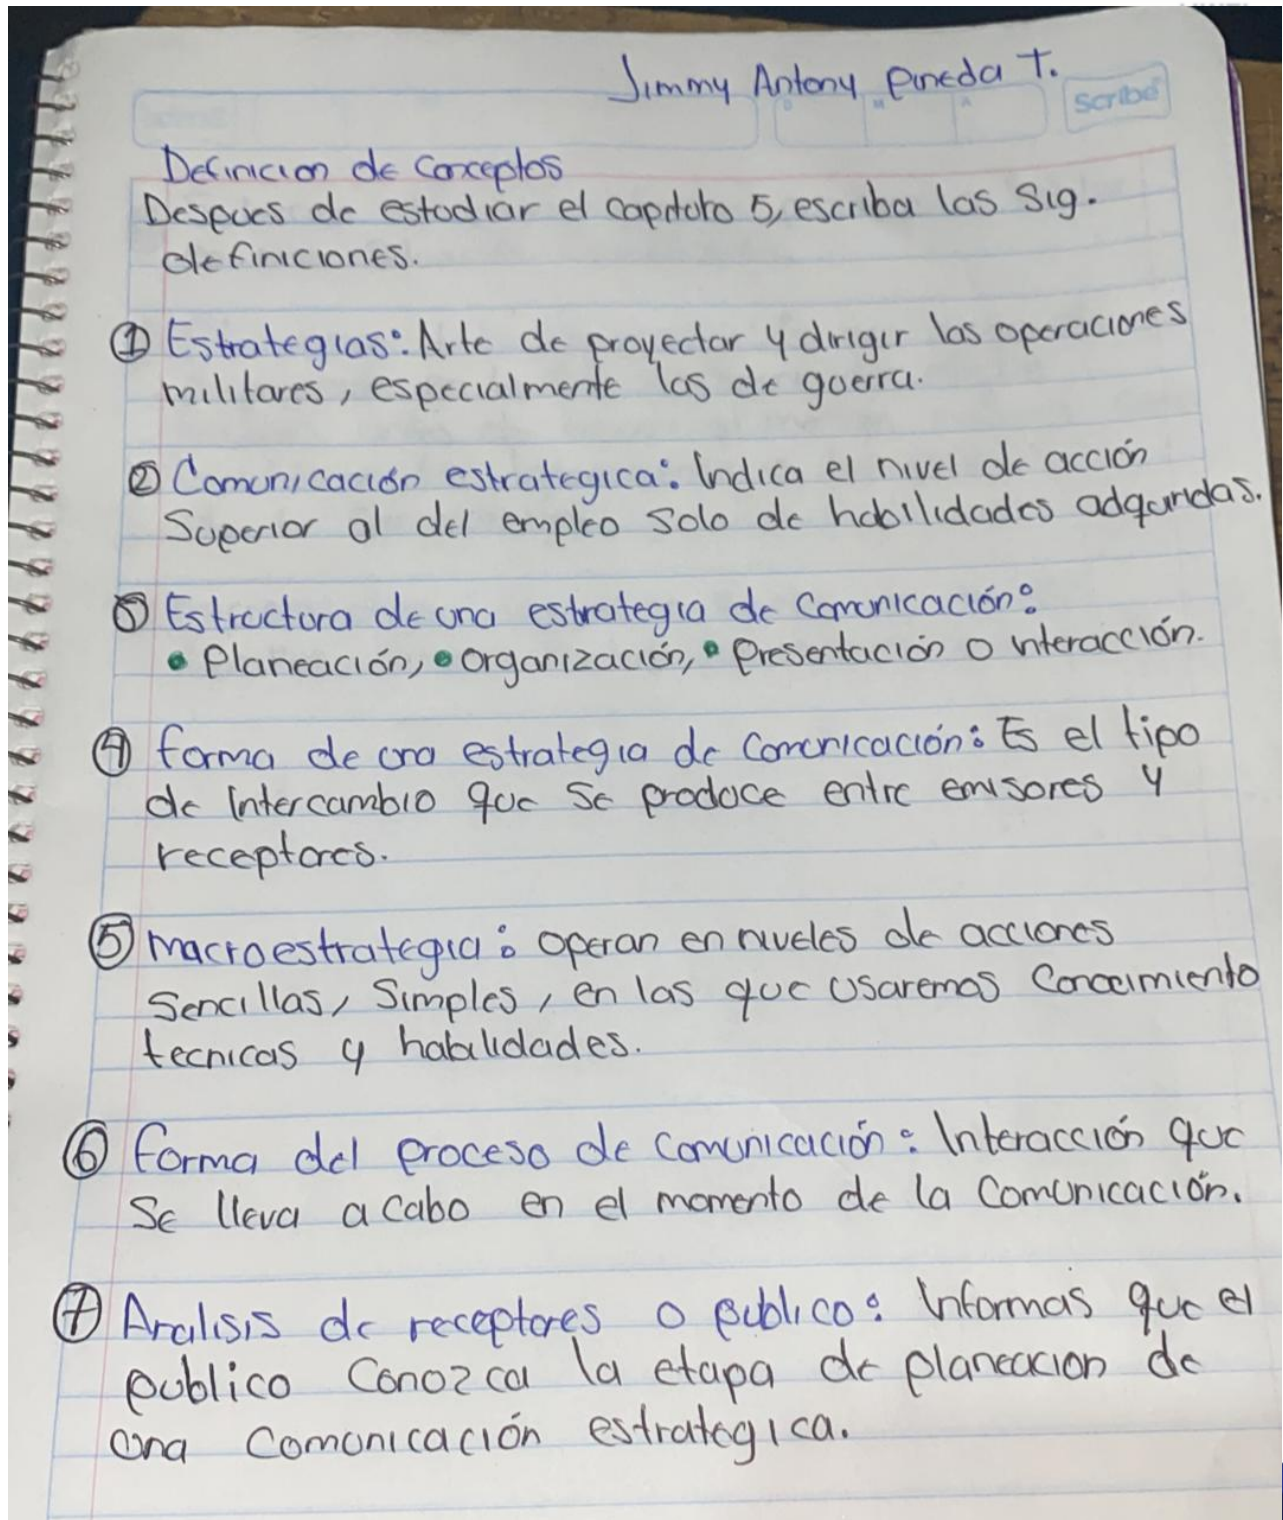 Jimmy Antony Pineda T.
Scribe
Definicion de Conceptos
Despues de estudiar el capitulo 5, escriba las Sig.
definiciones.
① Estrategias: Arte de proyectar y dirigir las operaciones
militares, especialmente las de guerra.
② Comunicación estrategica: Indica el nivel de acción
Superior al del empleo solo de habilidades adquiridas.
③ Estructura de una estrategia de comunicación:
• Planeación, • organización, • Presentación o interacción.
④ forma de una estrategia de comunicación: Es el tipo
de intercambio que se produce entre emisores y
receptores.
⑤ macroestrategia: operan en niveles de acciones
Sencillas, Simples, en las que usaremos Conocimiento
tecnicas y habilidades.
⑥ forma del proceso de comunicación: Interacción que
Se lleva a cabo en el momento de la Comunicación.
⑦ Analisis de receptores o publico: Informas que el
publico Conozca la etapa de planeacion de
una Comunicación estrategica.